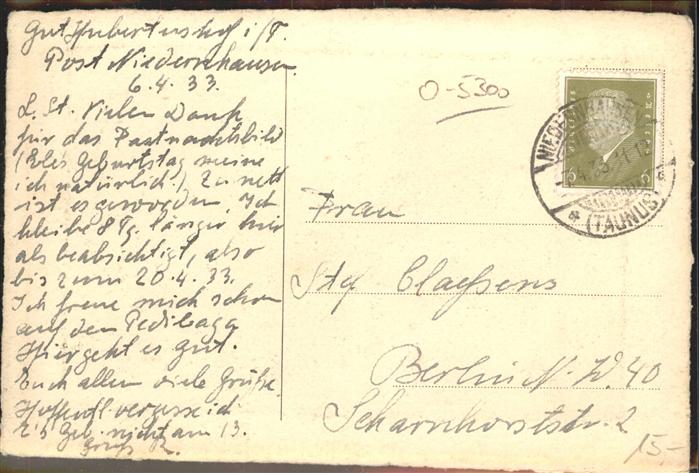 Gut Hubertushof i/T.
Post Niedernhausen
6.4.33.
L. St. Vielen Dank
für das Fastnachtsbild
Geburtstag meine
ich natürlich) Zu nett
ist es geworden. Ich
bleibe 8 Tg. länger hier
als beabsichtigt, also
bis zum 20.4.33.
Ich freue mich schon
auf den
Hier geht es gut.
Euch allen viele Grüße.
Hoffentl. vergesse ich
Geb. nicht am 13.
O-5300
NIEDERNHAUSEN
* (TAUNUS)
6 6
Frau
Claessens
Berlin N.W. 40
Scharnhorststr. 2
15-